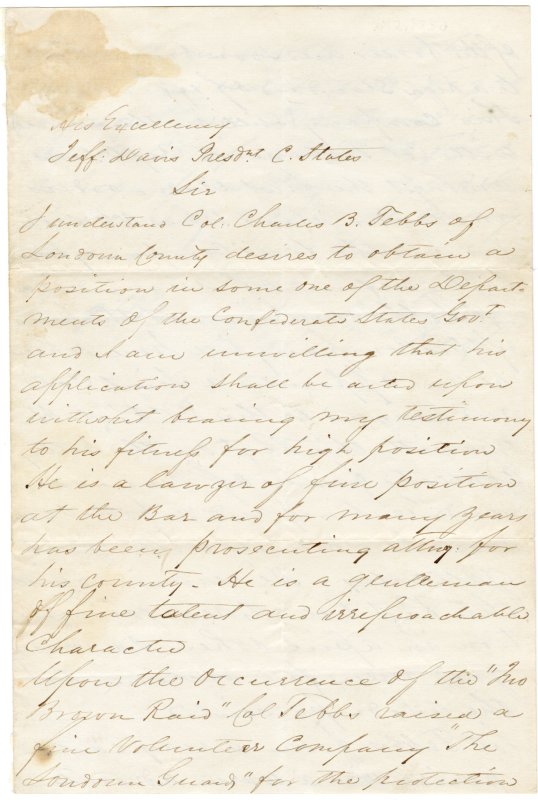 His Excellency
Jeff: Davis Presdnt C. States
Sir
I understand Col. Charles B. Tebbs of
Loudoun County desires to obtain a
position in some one of the Depart-
ments of the Confederate States Govt
and I am unwilling that his
application shall be acted upon
without bearing my testimony
to his fitness for high position
He is a lawyer of fine position
at the Bar and for many years
has been prosecuting atty. for
his county - He is a gentleman
of fine talent and irreproachable
Character
Upon the occurrence of the "Jno
Brown Raid" Col Tebbs raised a
fine Volunteer Company "The
Loudoun Guard" for the protection